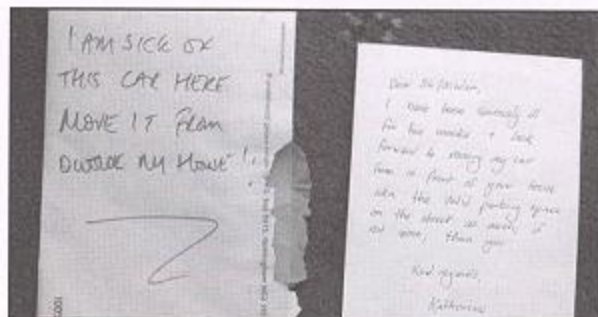 I AM SICK OF
THIS CAR HERE
MOVE IT FROM
OUTSIDE MY HOUSE!
Dear Sir/Madam,
I have been seriously ill
for two weeks + look
forward to moving my car
from in front of your house
when the
parking space
on the street as much, if
not more, than you
Kind regards,
Katherine